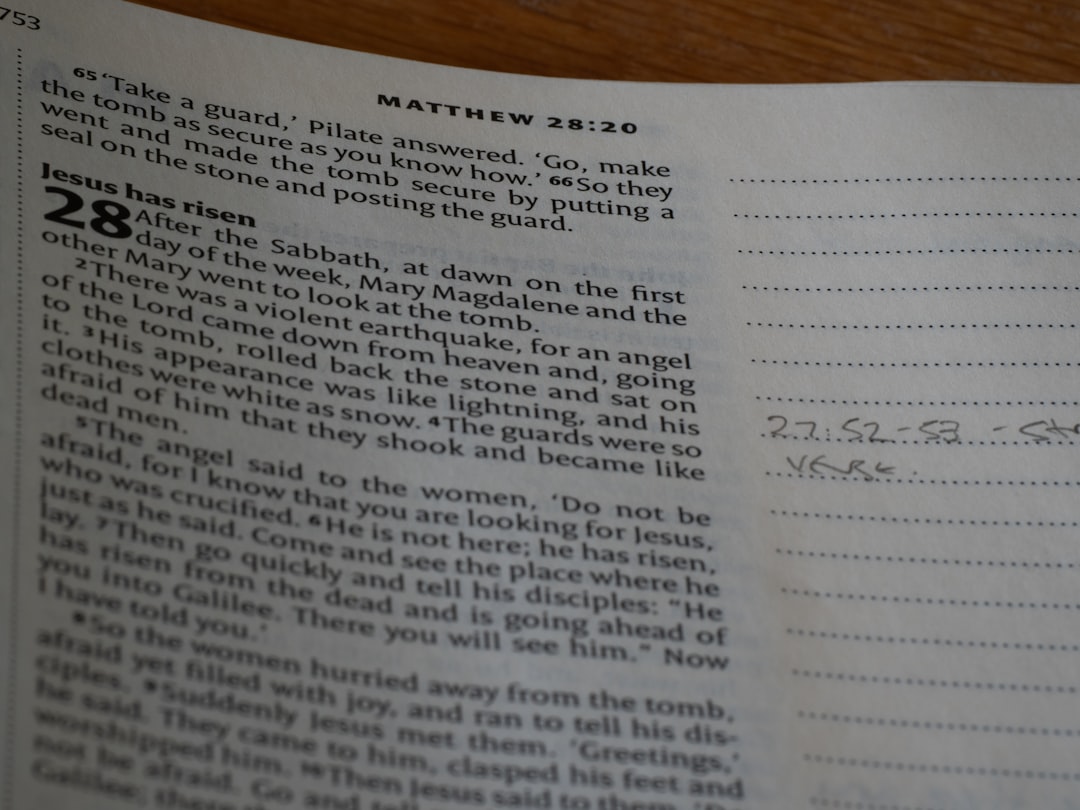 753
MATTHEW 28:20
65 ‘Take a guard,’ Pilate answered. ‘Go, make
the tomb as secure as you know how.’ 66 So they
went and made the tomb secure by putting a
seal on the stone and posting the guard.
Jesus has risen
28 After the Sabbath, at dawn on the first
day of the week, Mary Magdalene and the
other Mary went to look at the tomb.
2 There was a violent earthquake, for an angel
of the Lord came down from heaven and, going
to the tomb, rolled back the stone and sat on
it. 3 His appearance was like lightning, and his
clothes were white as snow. 4 The guards were so
afraid of him that they shook and became like
dead men.
5 The angel said to the women, ‘Do not be
afraid, for I know that you are looking for Jesus,
who was crucified. 6 He is not here; he has risen,
just as he said. Come and see the place where he
lay. 7 Then go quickly and tell his disciples: “He
has risen from the dead and is going ahead of
you into Galilee. There you will see him.” Now
I have told you.’
8 So the women hurried away from the tomb,
afraid yet filled with joy, and ran to tell his dis-
ciples. 9 Suddenly Jesus met them. ‘Greetings,’
he said. They came to him, clasped his feet and
worshipped him. 10 Then Jesus said to them,
not be afraid. Go and tell
Galilee; there
27:52-53 -
verse.